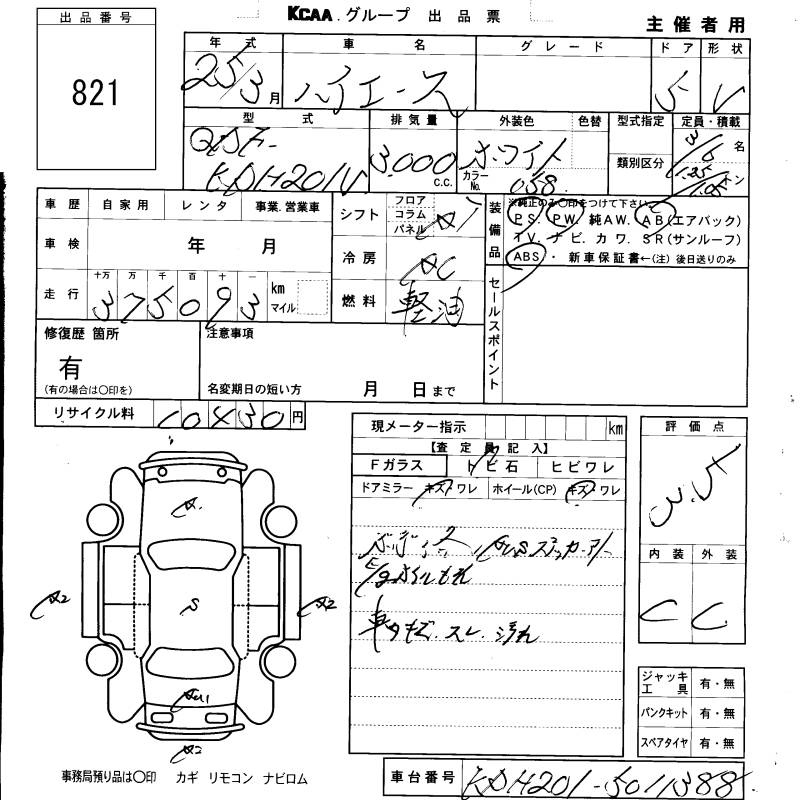 KCAA.グループ 出品票
主催者用
出品番号
821
年式 車名 グレード ドア 形状
25/3月 ハイエース 5 V
型式 排気量 外装色 色替 型式指定 定員・積載
QDF-KDH201V 3,000 c.c. ホワイト カラーNo. 058 類別区分 名
車歴 自家用 レンタ 事業.営業車
シフト フロア コラム パネル
装備品 ※純正のみ〇印をつけて下さい。
PS. PW. 純AW. AB(エアバック)
TV. ナビ. カワ. SR(サンルーフ)
ABS ・ 新車保証書←(注) 後日送りのみ
車検 年 月
冷房 AC
走行 十万 万 千 百 十 一
375093 km マイル
燃料 軽油
セールスポイント
修復歴 箇所
有
(有の場合は〇印を)
注意事項
名変期日の短い方 月 日まで
リサイクル料 10430円
現メーター指示 km
【査定員記入】
Fガラス トビ石 ヒビワレ
ドアミラー キズ・ワレ ホイール(CP) キズ・ワレ
E/gオイルもれ
スレ. 汚れ
評価点
3.5
内装 外装
C C
A.
A2
S
A2
AU1
A2
ジャッキ工具 有・無
パンクキット 有・無
スペアタイヤ 有・無
事務局預り品は〇印 カギ リモコン ナビロム
車台番号 KDH201-5011388